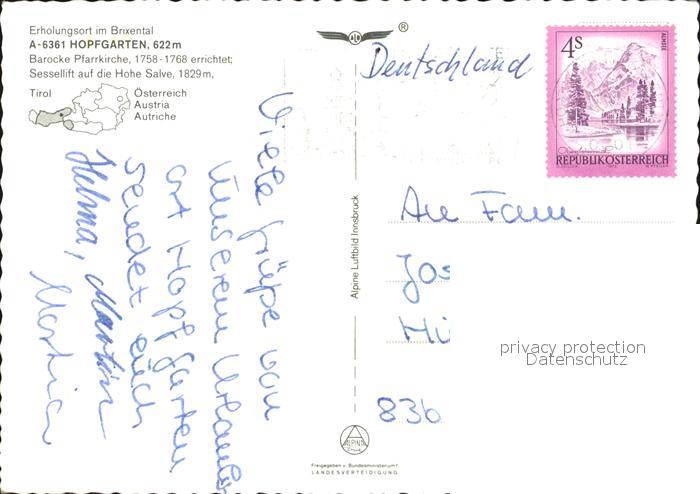 Erholungsort im Brixental
A-6361 HOPFGARTEN, 622 m
Barocke Pfarrkirche, 1758-1768 errichtet;
Sessellift auf die Hohe Salve, 1829 m,
Tirol
Österreich
Austria
Autriche
Viele Grüße von
unserem Urlaubs
ort Hopfgarten
sendet euch
Helma, Martin
Martina
Alpine Luftbild Innsbruck
®
Deutschland
4s
ALMSEE
REPUBLIK ÖSTERREICH
An Fam.
Jos
Hi
836
privacy protection
Datenschutz
ALPINE
Freigegeben v. Bundesministerium f.
LANDESVERTEIDIGUNG